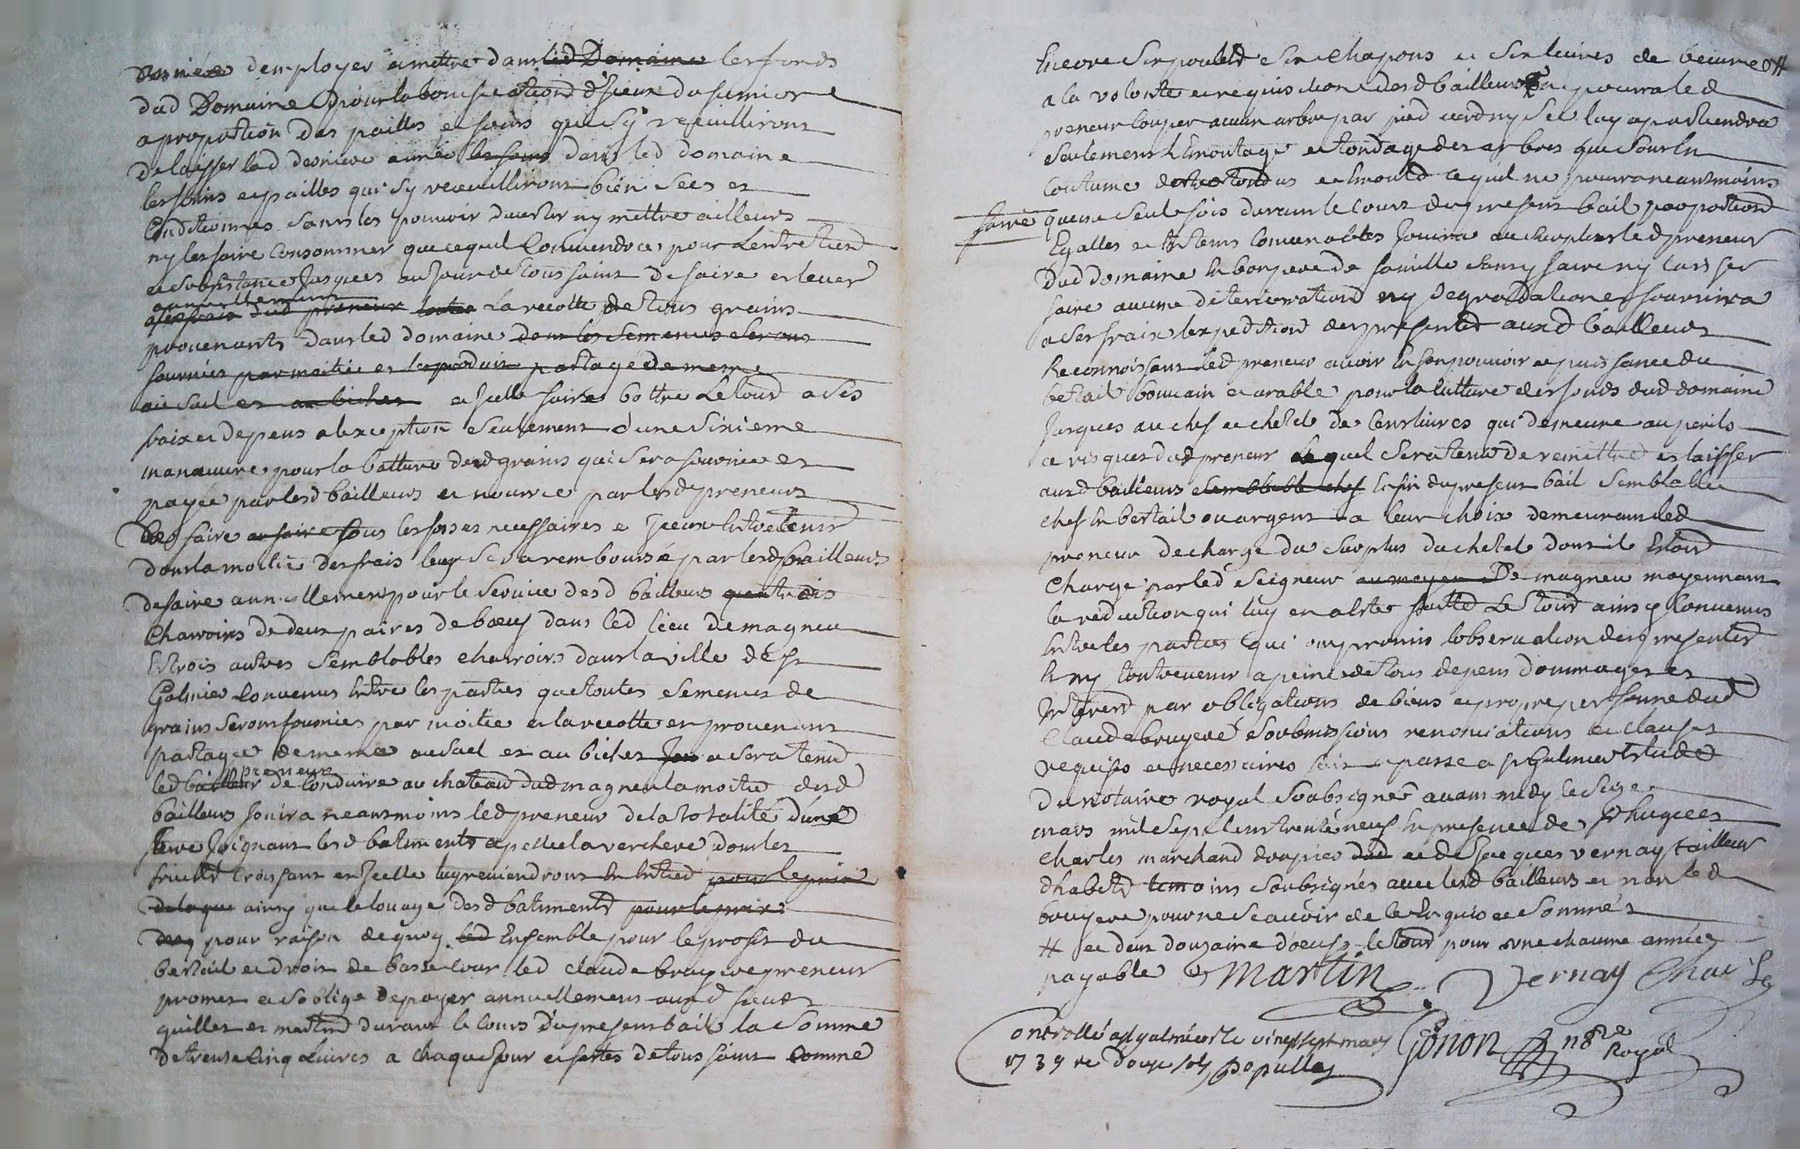 d'employer et mettre dans led Domaine les fonds
dud Domaine pour la bonification d'iceux du fumier
a proportion des pailles et foins qui s'y receuilliront
De laisser lad derniere année les foins dans led domaine
les foins et pailles qui s'y receuilliront bien secs et
Conditionnés sans les pouvoir divertir ny mettre ailleurs
ny les faire consommer que ce quil conviendra pour L'entretient
et subsistance jusques au jour de toussaint de faire et lever
annuellement
a ses frais dud preneur toutte La recolte de tous grains
provenants dans led domaine dont les semences seront
fournies par moitié et le produit partagé de meme
au sac et au bichet et icelle faire battre Le tout a ses
fraix et depens a l'exception seulement d'une sixieme
manœuvre pour la batture desd grains qui sera fournie et
payée par lesd bailleurs et nourrie par lesd preneurs
de faire tous les fossés necessaires et iceux entretenir
dont la moitié des frais leur sera remboursé par lesd bailleurs
de faire annuellement pour le service desd bailleurs
charroirs de deux paires de bœufs dans led lieu de magneu
Et trois autres semblables charroirs dans la ville de st
Galmier Convenus Entre les parties que toutes semences de
grains seront fournies par moitié et la recolte en provenant
partagée de meme au sac et au bichet sera tenu
preneur
led bailleur de conduire au chateau dud magneu la moitié desd
bailleurs jouira neantmoins led preneur de la totalité d'une
terre joignant lesd batiments apellé la verchere dont les
fruits croissant en icelle luy reviendront En Entier pour le prix
ainsy que le louage desd batiments pour le prix
pour raison de quoy led Ensemble pour le profit du
bestail et droit de basse cour led claude bruyere preneur
promet et s'oblige de payer annuellement auxd sieurs
quillet et martin durant le cours du present bail la somme
de trente cinq Livres a chaque jour et festes de toussaint comme
Encore six poulets six chapons et six livres de beurre #
a la volonté et requisition desd bailleurs ne pourra led
preneur couper aucun arbre par pied verd ny sec luy apartiendra
seulement L'Emontage et tondage des arbres que sont En
coutume d'estre tondus et Emondé ce quil ne pourra neantmoins
faire que une seule fois durant le cours du present bail proportion
Egalles et En tems convenables jouira au surplus led preneur
Dud domaine En bon pere de famille sans y faire ny laisser
faire aucune deterioration ny degradation et fournira
a ses fraix l'expedition des presentes auxd bailleurs
Reconnoissant led preneur avoir En son pouvoir et puissance du
bestail bouvain et arable pour la culture des fonds dud domaine
jusques au chef et cheptel de Cent livres qui demeure au perils
et risques dud preneur Lequel sera tenu de remettre et laisser
auxd bailleurs semblable chef En fin du present bail semblable
chef En bestail ou argent a leur choix demeurant led
preneur decharge du surplus du cheptel dont il Estoit
chargé par led seigneur De magneu moyennant
la reduction qui luy en a este faitte Le tout ainsy Convenus
Entre les parties qui ont promis l'observation des presentes
Et ny contrevenir a peine de tous depens dommages et
Interets par obligations de biens et propre personne dud
Claude bruyere soubmissions renonciations et clauses
requises et necessaires fait et passé a st Galmier Etude
Du notaire royal soubsigné avant midy le seize
mars mil sept cent trente neuf En presence de sr hugues
Charles marchand drapier et de jacques vernay tailleur
d'habits temoins soubsignés avec lesd bailleurs et non led
bruyere pour ne scavoir de ce Enquis et sommé
# et deux douzaine d'œufs le tout pour une chacune année
payable martin Vernay Charles
Controllé a st galmier le vingt sept mars
1739 re Douze sols populle
Gonon nre Royal